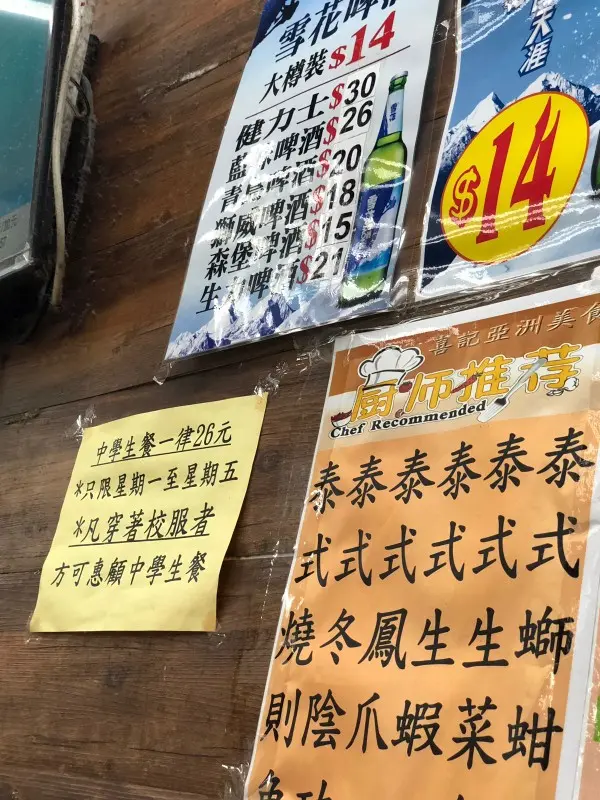 雪花啤
大樽裝$14
健力士$30
藍冰啤酒$26
青島啤酒$20
獅威啤酒$18
森堡啤酒$15
生力啤酒$21
天涯
$14
喜記亞洲美食
厨师推荐
Chef Recommended
泰泰泰泰泰泰
式式式式式式
燒冬鳳生生螄
則陰爪蝦菜蚶
中學生餐一律26元
*只限星期一至星期五
*凡穿著校服者
方可惠顧中學生餐